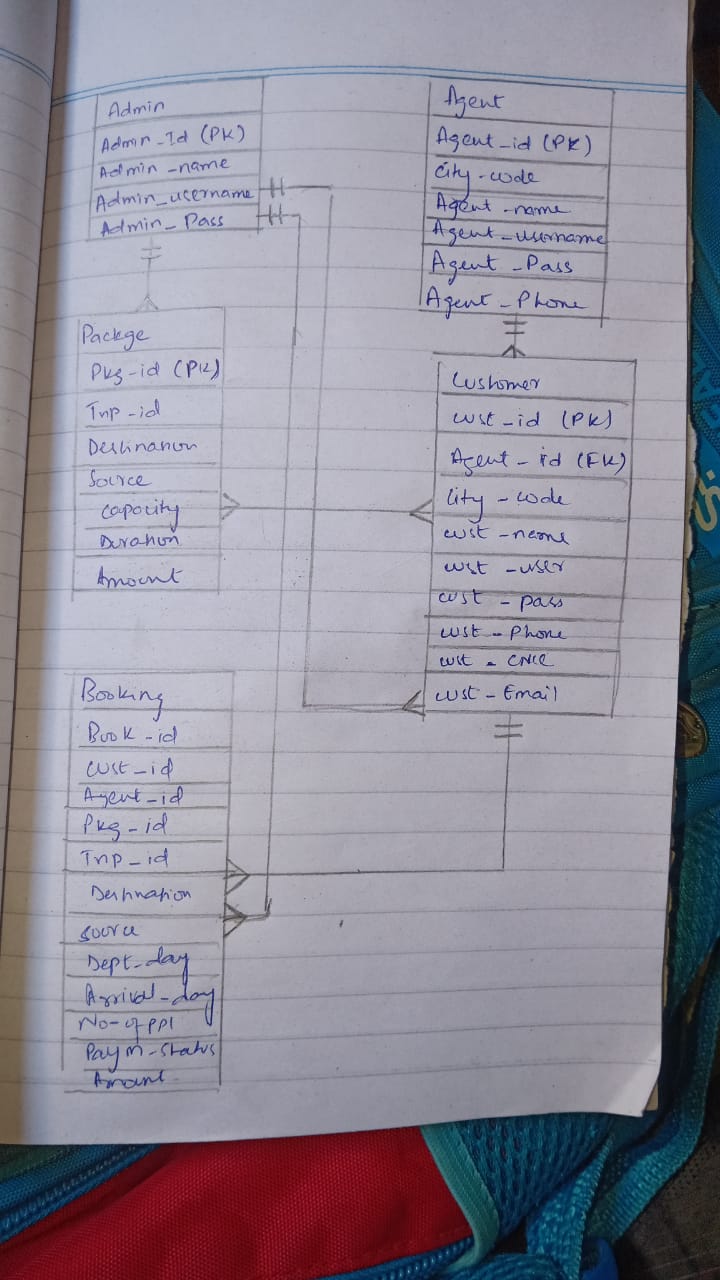 Admin
Admin_Id (PK)
Admin_name
Admin_username
Admin_Pass
Agent
Agent_id (PK)
City-code
Agent_name
Agent_username
Agent_Pass
Agent_Phone
Packge
Pkg-id (PK)
Trip-id
Destination
Source
Capacity
Duration
Amount
Customer
cust_id (PK)
Agent_id (FK)
City-code
cust-name
cust-user
cust-pass
cust-Phone
cust-CNIC
cust-Email
Booking
Book-id
cust-id
Agent-id
Pkg-id
Trip_id
Destination
source
Dept-day
Arrival-day
No-of ppl
Paym-status
Amount